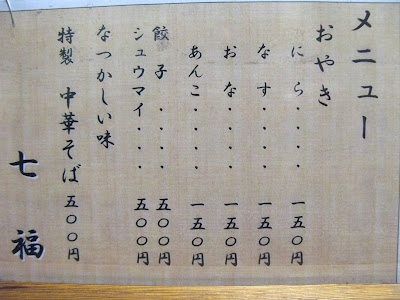 メニュー
おやき
にら・・・・一五〇円
なす・・・・一五〇円
おな・・・・一五〇円
あんこ・・・・一五〇円
餃子・・・・五〇〇円
シュウマイ・・・・五〇〇円
なつかしい味
特製 中華そば 五〇〇円
七福